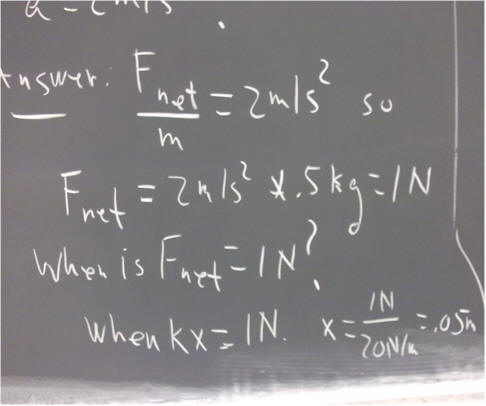 a = 2m/s
Answer: F_net/m = 2m/s² so
F_net = 2m/s² x .5kg = 1N
When is F_net = 1N?
When Kx = 1N. x = 1N/20N/m = .05m